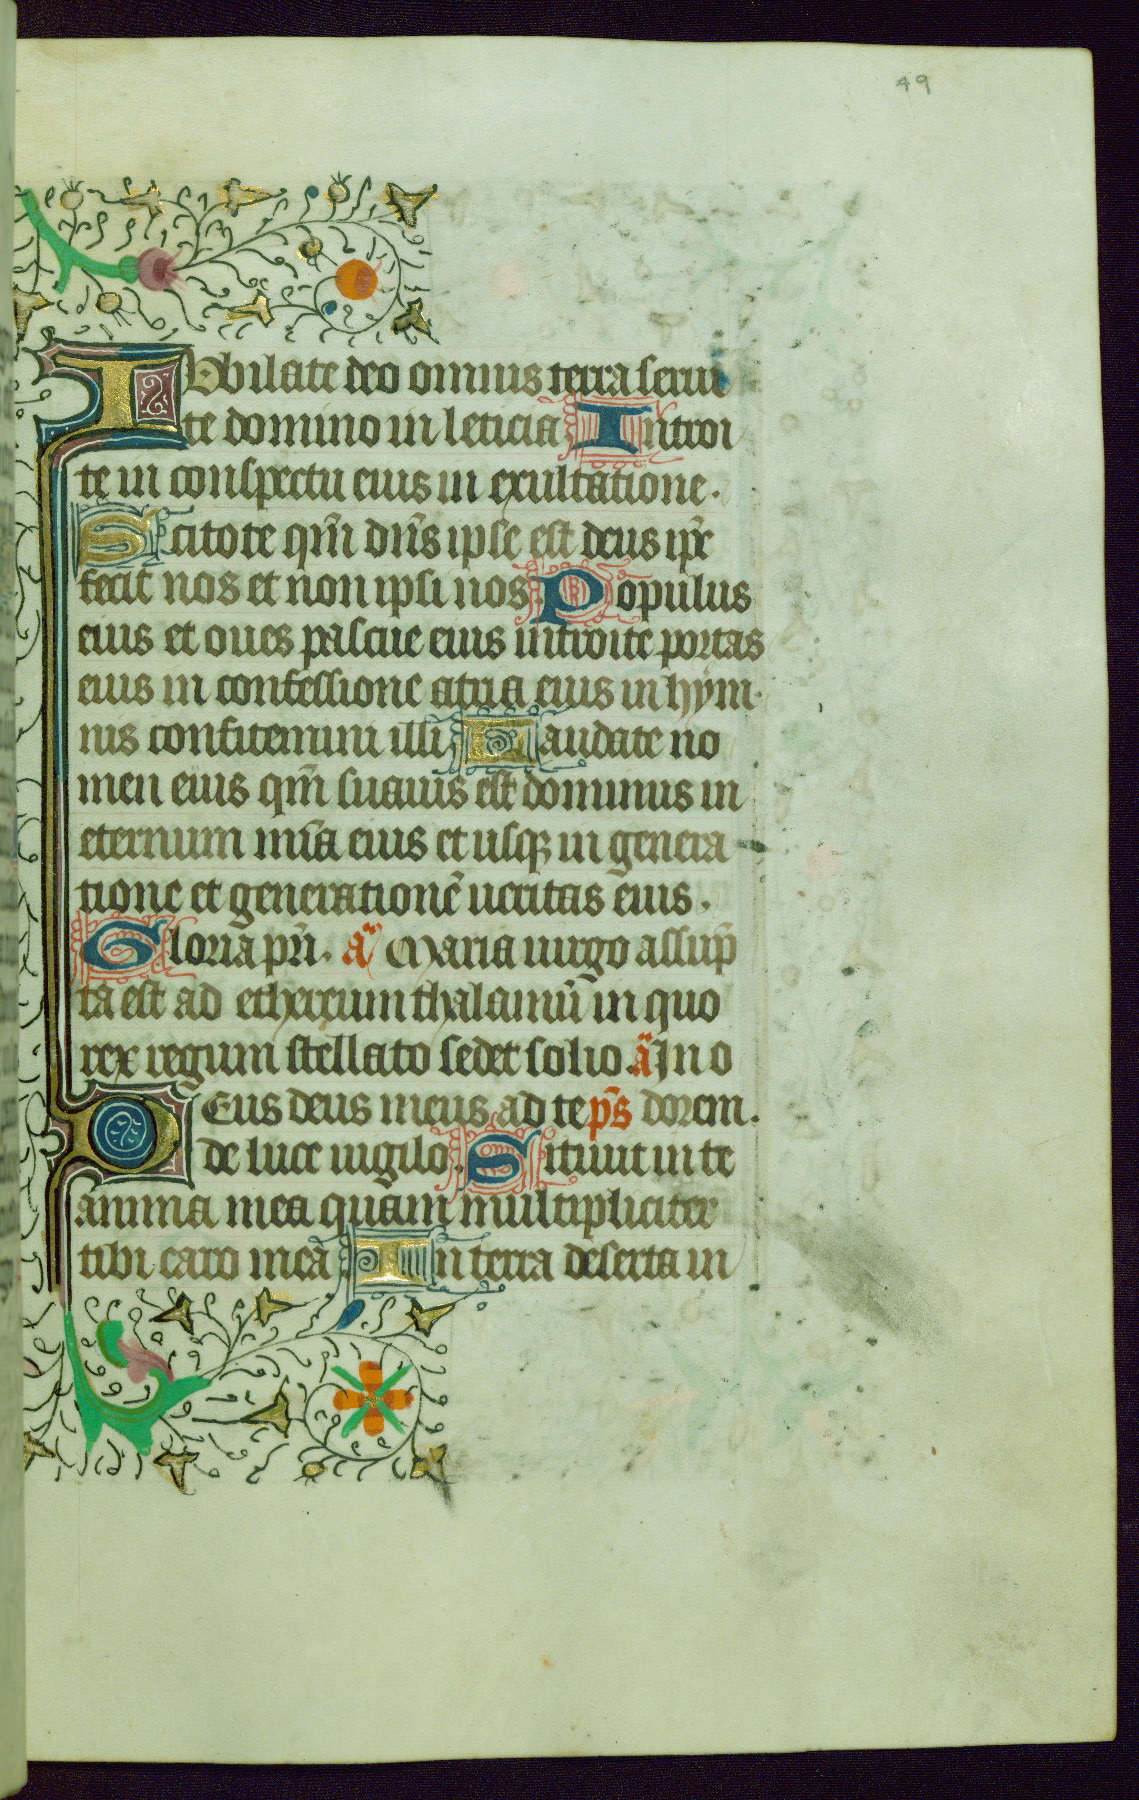 49
IUbilate deo omnis terra serui
te domino in leticia Introi
te in conspectu eius in exultatione.
Scitote qm̄ dn̄s ipse est deus ip̄e
fecit nos et non ipsi nos Populus
eius et oues pascue eius introite portas
eius in confessione atria eius in hym
nis confitemini illi Laudate no
men eius qm̄ suauis est dominus in
eternum mīa eius et usqꝫ in genera
tione et generationē ueritas eius.
Gloria pr̄i. an̄ Maria uirgo assūp
ta est ad ethereum thalamū in quo
rex regum stellato sedet solio. an̄ In o
DEus deus meus ad te ps̄ dorem.
de luce uigilo. Sitiuit in te
anima mea quam multipliciter
tibi caro mea In terra deserta in